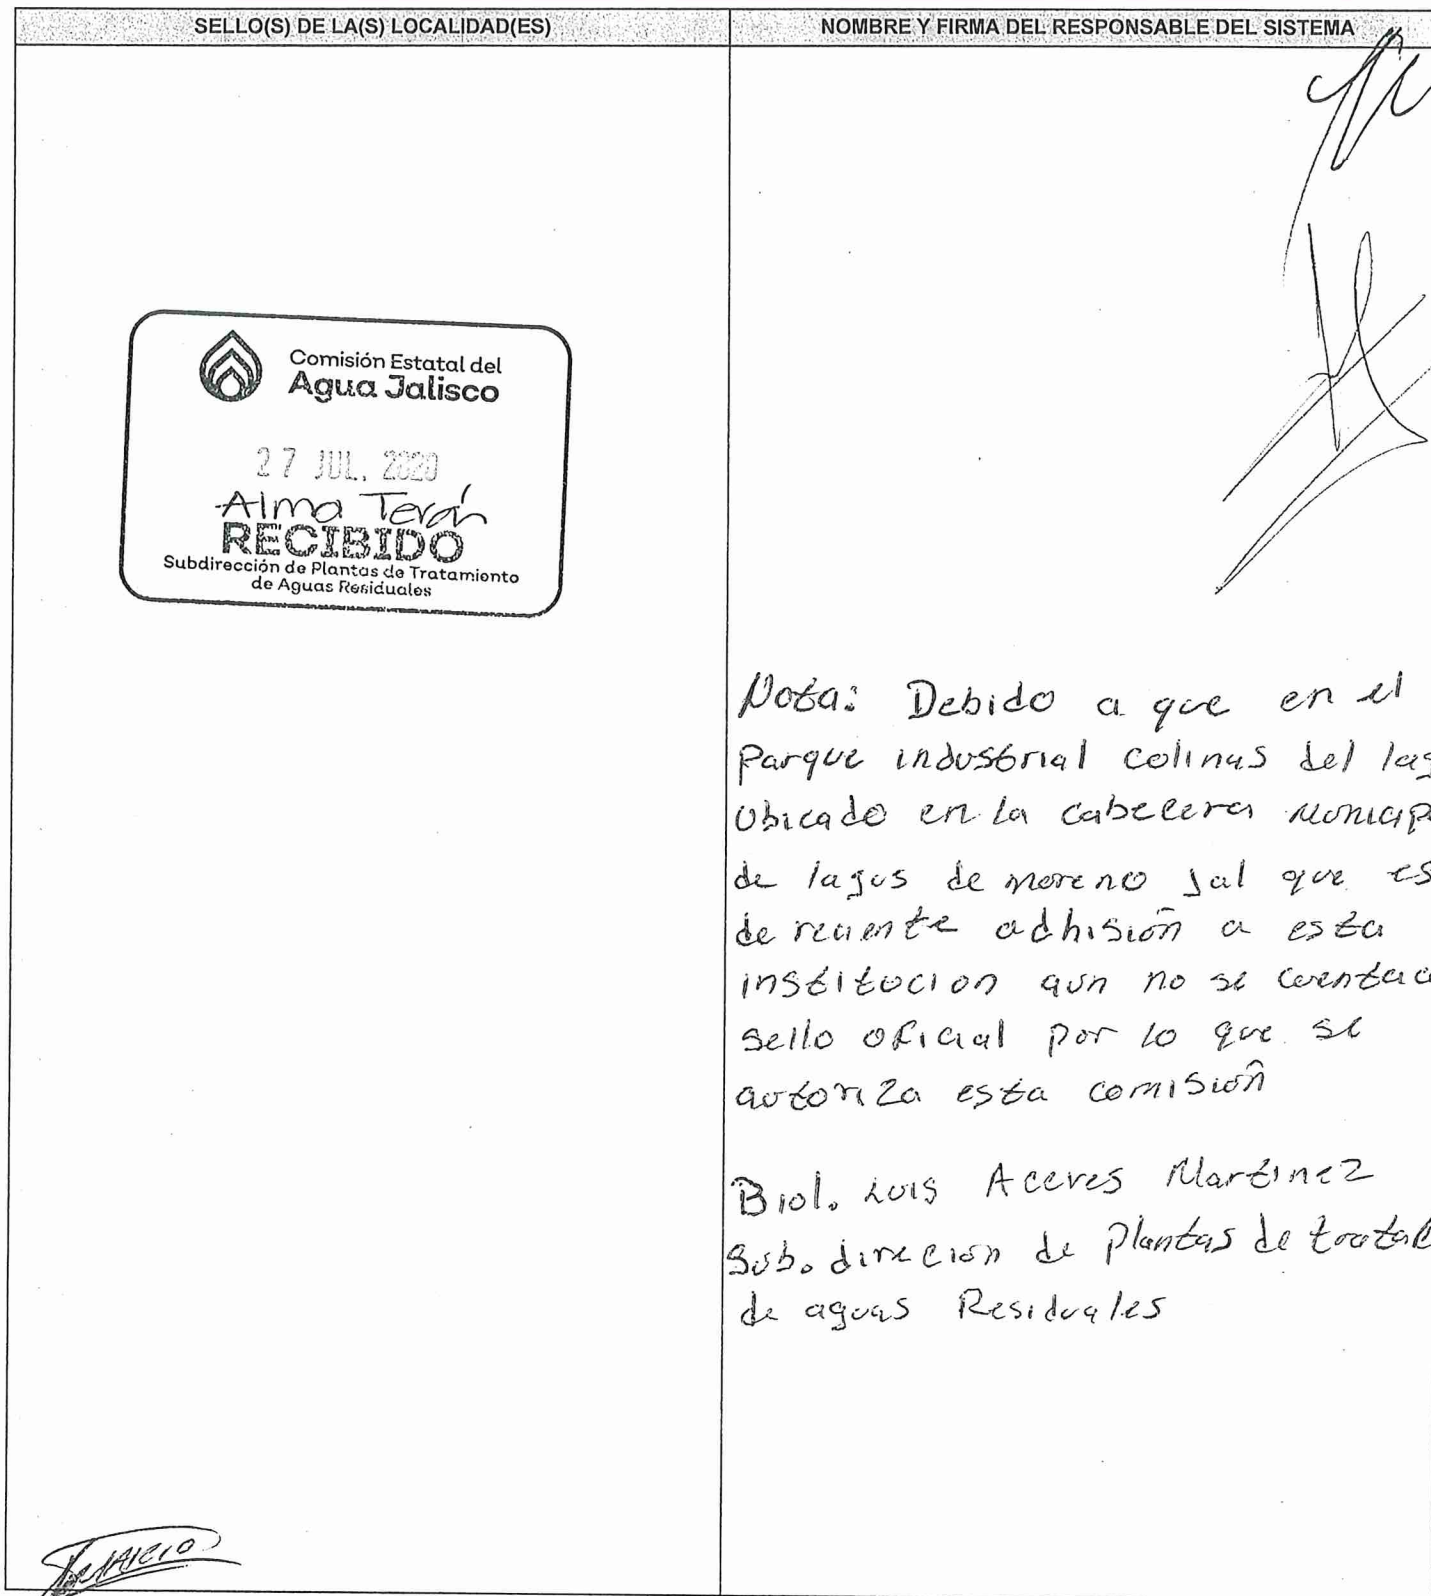 SELLO(S) DE LA(S) LOCALIDAD(ES)
NOMBRE Y FIRMA DEL RESPONSABLE DEL SISTEMA
Comisión Estatal del
Agua Jalisco
27 JUL. 2020
Alma Terán
RECIBIDO
Subdirección de Plantas de Tratamiento
de Aguas Residuales
Nota: Debido a que en el
Parque industrial colinas del lag
Ubicado en la cabecera Municip
de lagos de moreno Jal que es
de reciente adhisión a esta
institucion aun no se cuenta co
sello oficial por lo que se
autoriza esta comisión
Biol. Luis Aceves Martinez
Sub. direcion de Plantas de trata
de aguas Residuales